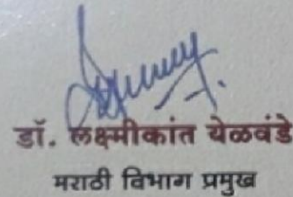 डॉ. लक्ष्मीकांत येळवंडे
मराठी विभाग प्रमुख